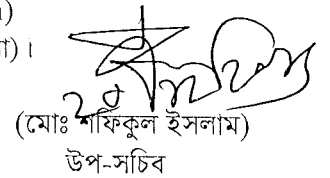 )
া)।
(মোঃ শফিকুল ইসলাম)
উপ-সচিব